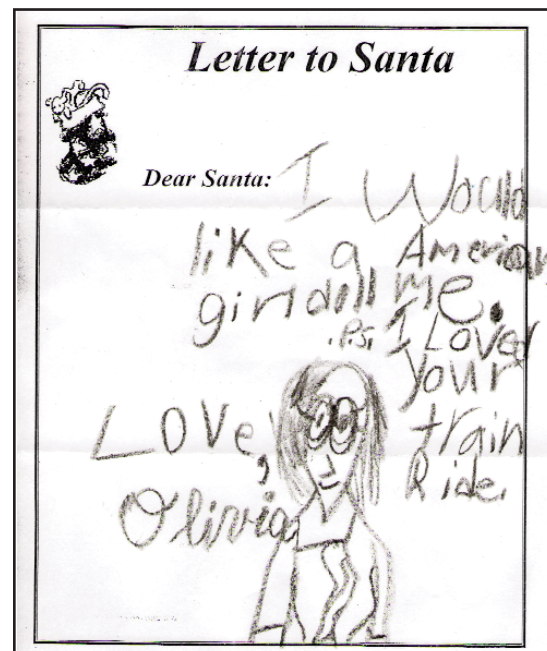 Letter to Santa
Dear Santa: I Would
like a American
girl doll me.
.P.S. I Loved
your
train
Ride.
Love,
Olivia